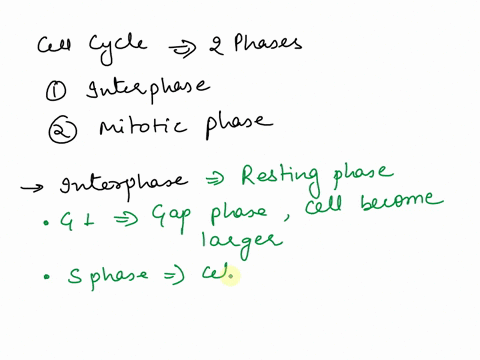 Cell Cycle ⇒ 2 Phases
① Interphase
② Mitotic phase
→ Interphase ⇒ Resting phase
• G1 ⇒ Gap phase, Cell become
larger
• S phase ⇒ Cel